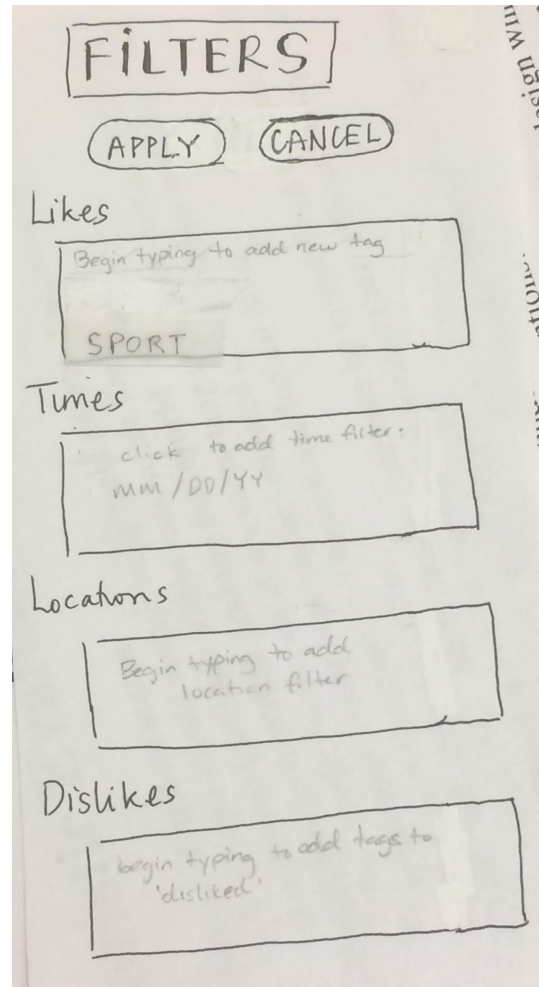 FiLTERS
APPLY
CANCEL
Likes
Begin typing to add new tag
SPORT
Times
click to add time filter:
MM/DD/YY
Locations
Begin typing to add
location filter
Dislikes
begin typing to add tags to
'disliked'